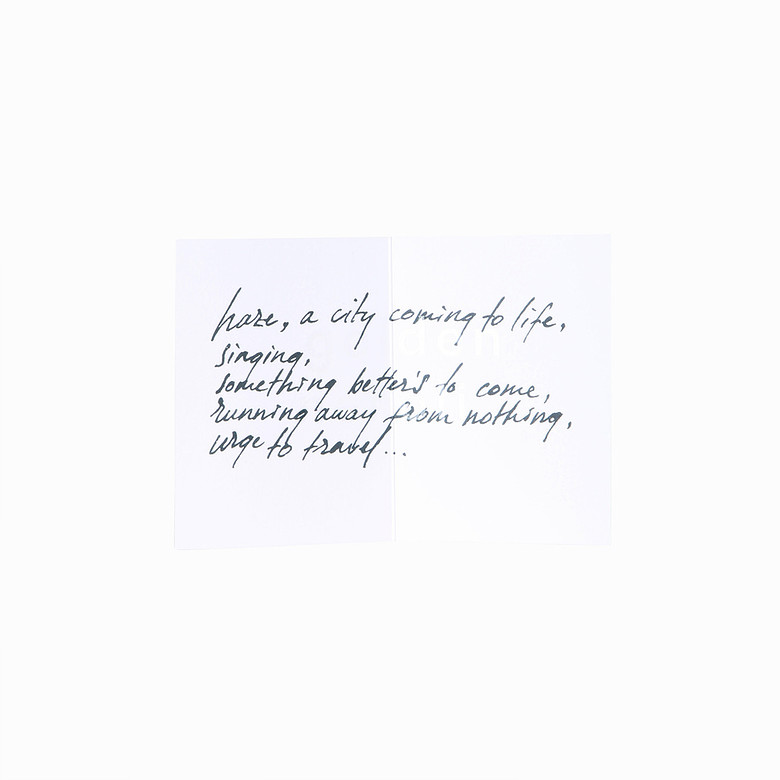 haze, a city coming to life,
singing,
something better's to come,
running away from nothing,
urge to travel...